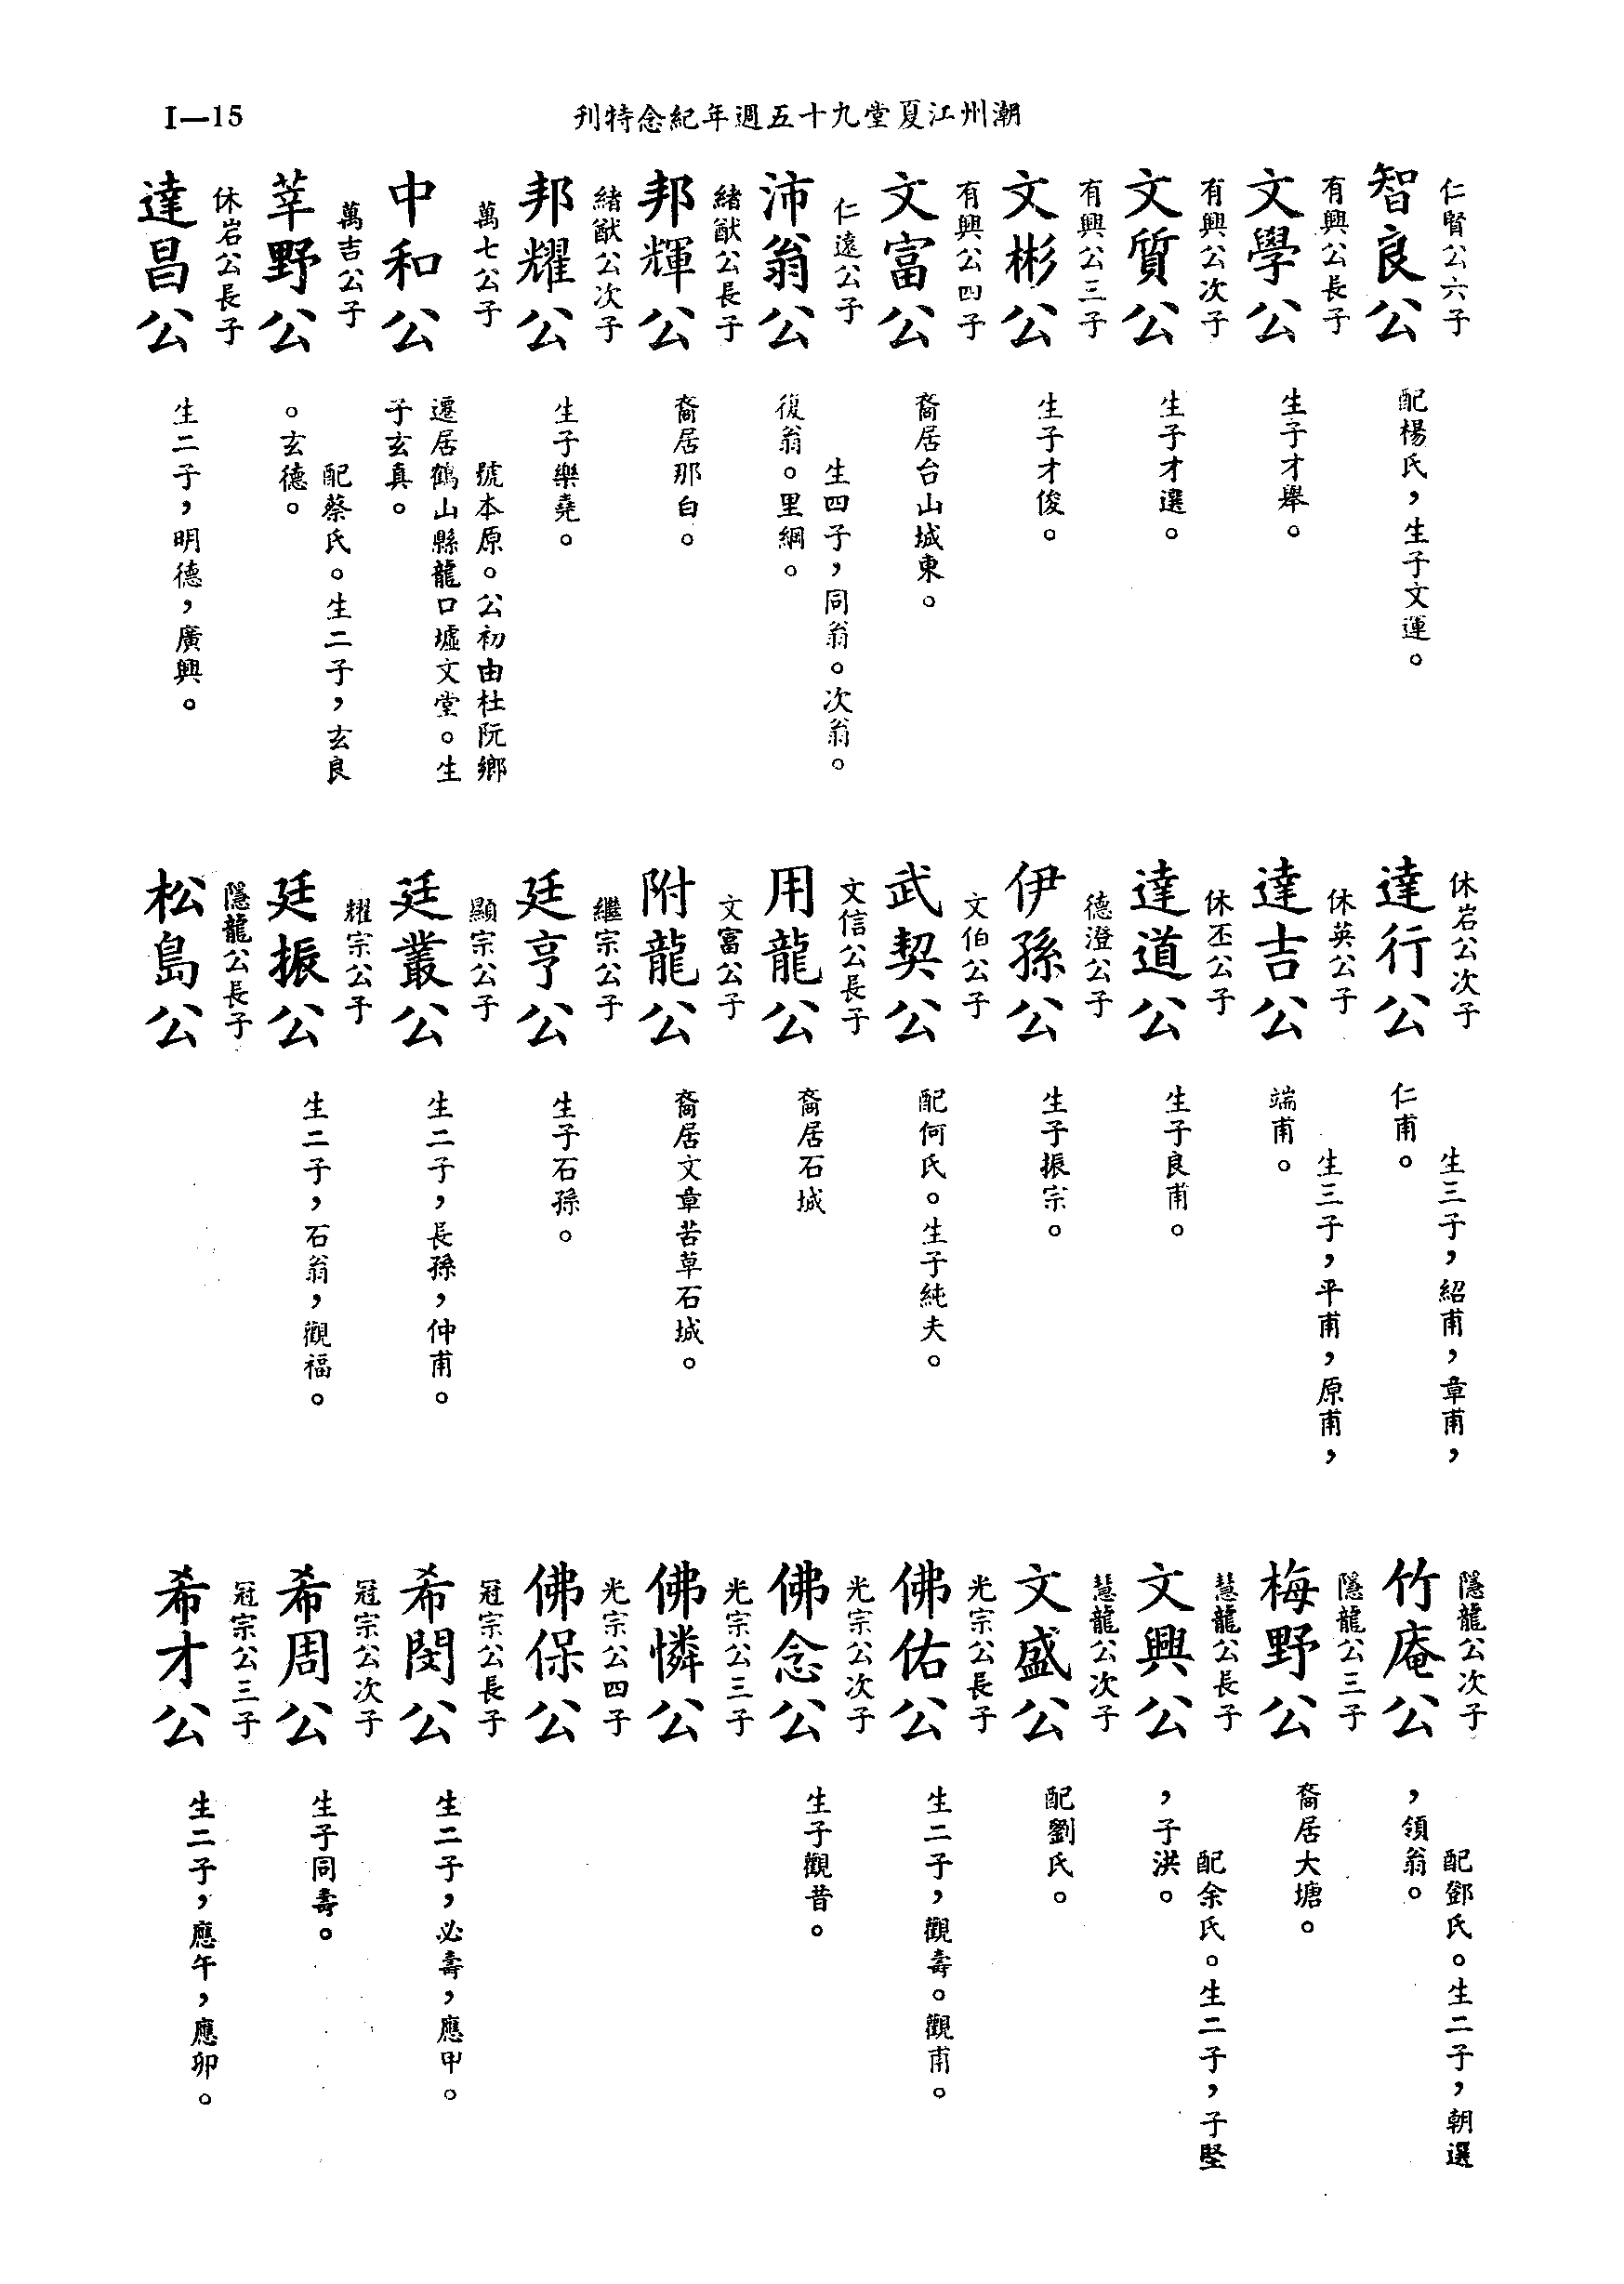 I—15
潮州江夏堂九十五週年紀念特刊
仁賢公六子
智良公
配楊氏，生子文運。
有興公長子
文學公
生子才舉。
有興公次子
文質公
生子才選。
有興公三子
文彬公
生子才俊。
有興公四子
文富公
裔居台山城東。
仁遠公子
沛翁公
生四子，同翁。次翁。
復翁。里綱。
緒猷公長子
邦輝公
裔居那白。
緒猷公次子
邦耀公
生子樂堯。
萬七公子
中和公
號本原。公初由杜阮鄉
遷居鶴山縣龍口墟文堂。生
子玄真。
萬吉公子
莘野公
配蔡氏。生二子，玄良
。玄德。
休岩公長子
達昌公
生二子，明德，廣興。
休岩公次子
達行公
生三子，紹甫，章甫，
仁甫。
休英公子
達吉公
生三子，平甫，原甫，
端甫。
休丕公子
達道公
生子良甫。
德澄公子
伊孫公
生子振宗。
文伯公子
武契公
配何氏。生子純夫。
文信公長子
用龍公
裔居石城
文富公子
附龍公
裔居文章苦草石城。
繼宗公子
廷亨公
生子石孫。
顯宗公子
廷叢公
生二子，長孫，仲甫。
耀宗公子
廷振公
生二子，石翁，觀福。
隱龍公長子
松島公
隱龍公次子
竹庵公
配鄧氏。生二子，朝選
，領翁。
隱龍公三子
梅野公
裔居大塘。
慧龍公長子
文興公
配余氏。生二子，子堅
，子洪。
慧龍公次子
文盛公
配劉氏。
光宗公長子
佛佑公
生二子，觀壽。觀甫。
光宗公次子
佛念公
生子觀昔。
光宗公三子
佛憐公
光宗公四子
佛保公
冠宗公長子
希閔公
生二子，必壽，應甲。
冠宗公次子
希周公
生子同壽。
冠宗公三子
希才公
生二子，應午，應卯。